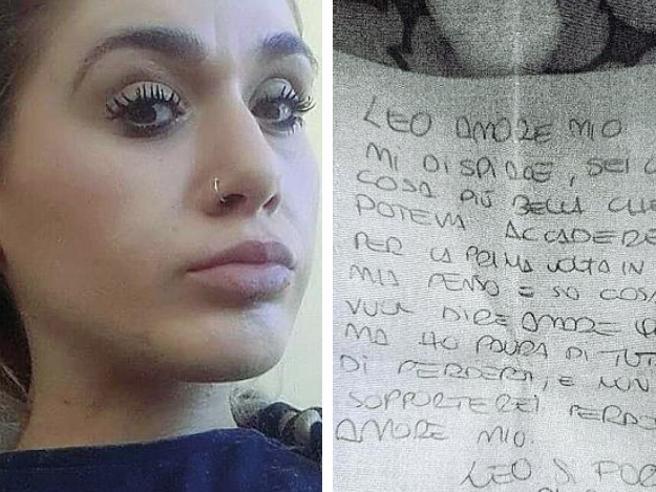 LEO AMORE MIO
MI DISPIACE, SEI
COSA PIÙ BELLA CHE
POTEVA ACCADERE
PER LA PRIMA VOLTA IN
MIA PENSO E SO COSA
VUOL DIRE AMORE
MA HO PAURA DI
DI PERDERTI, E NON
SOPPORTEREI PERDO
AMORE MIO.
LEO SI